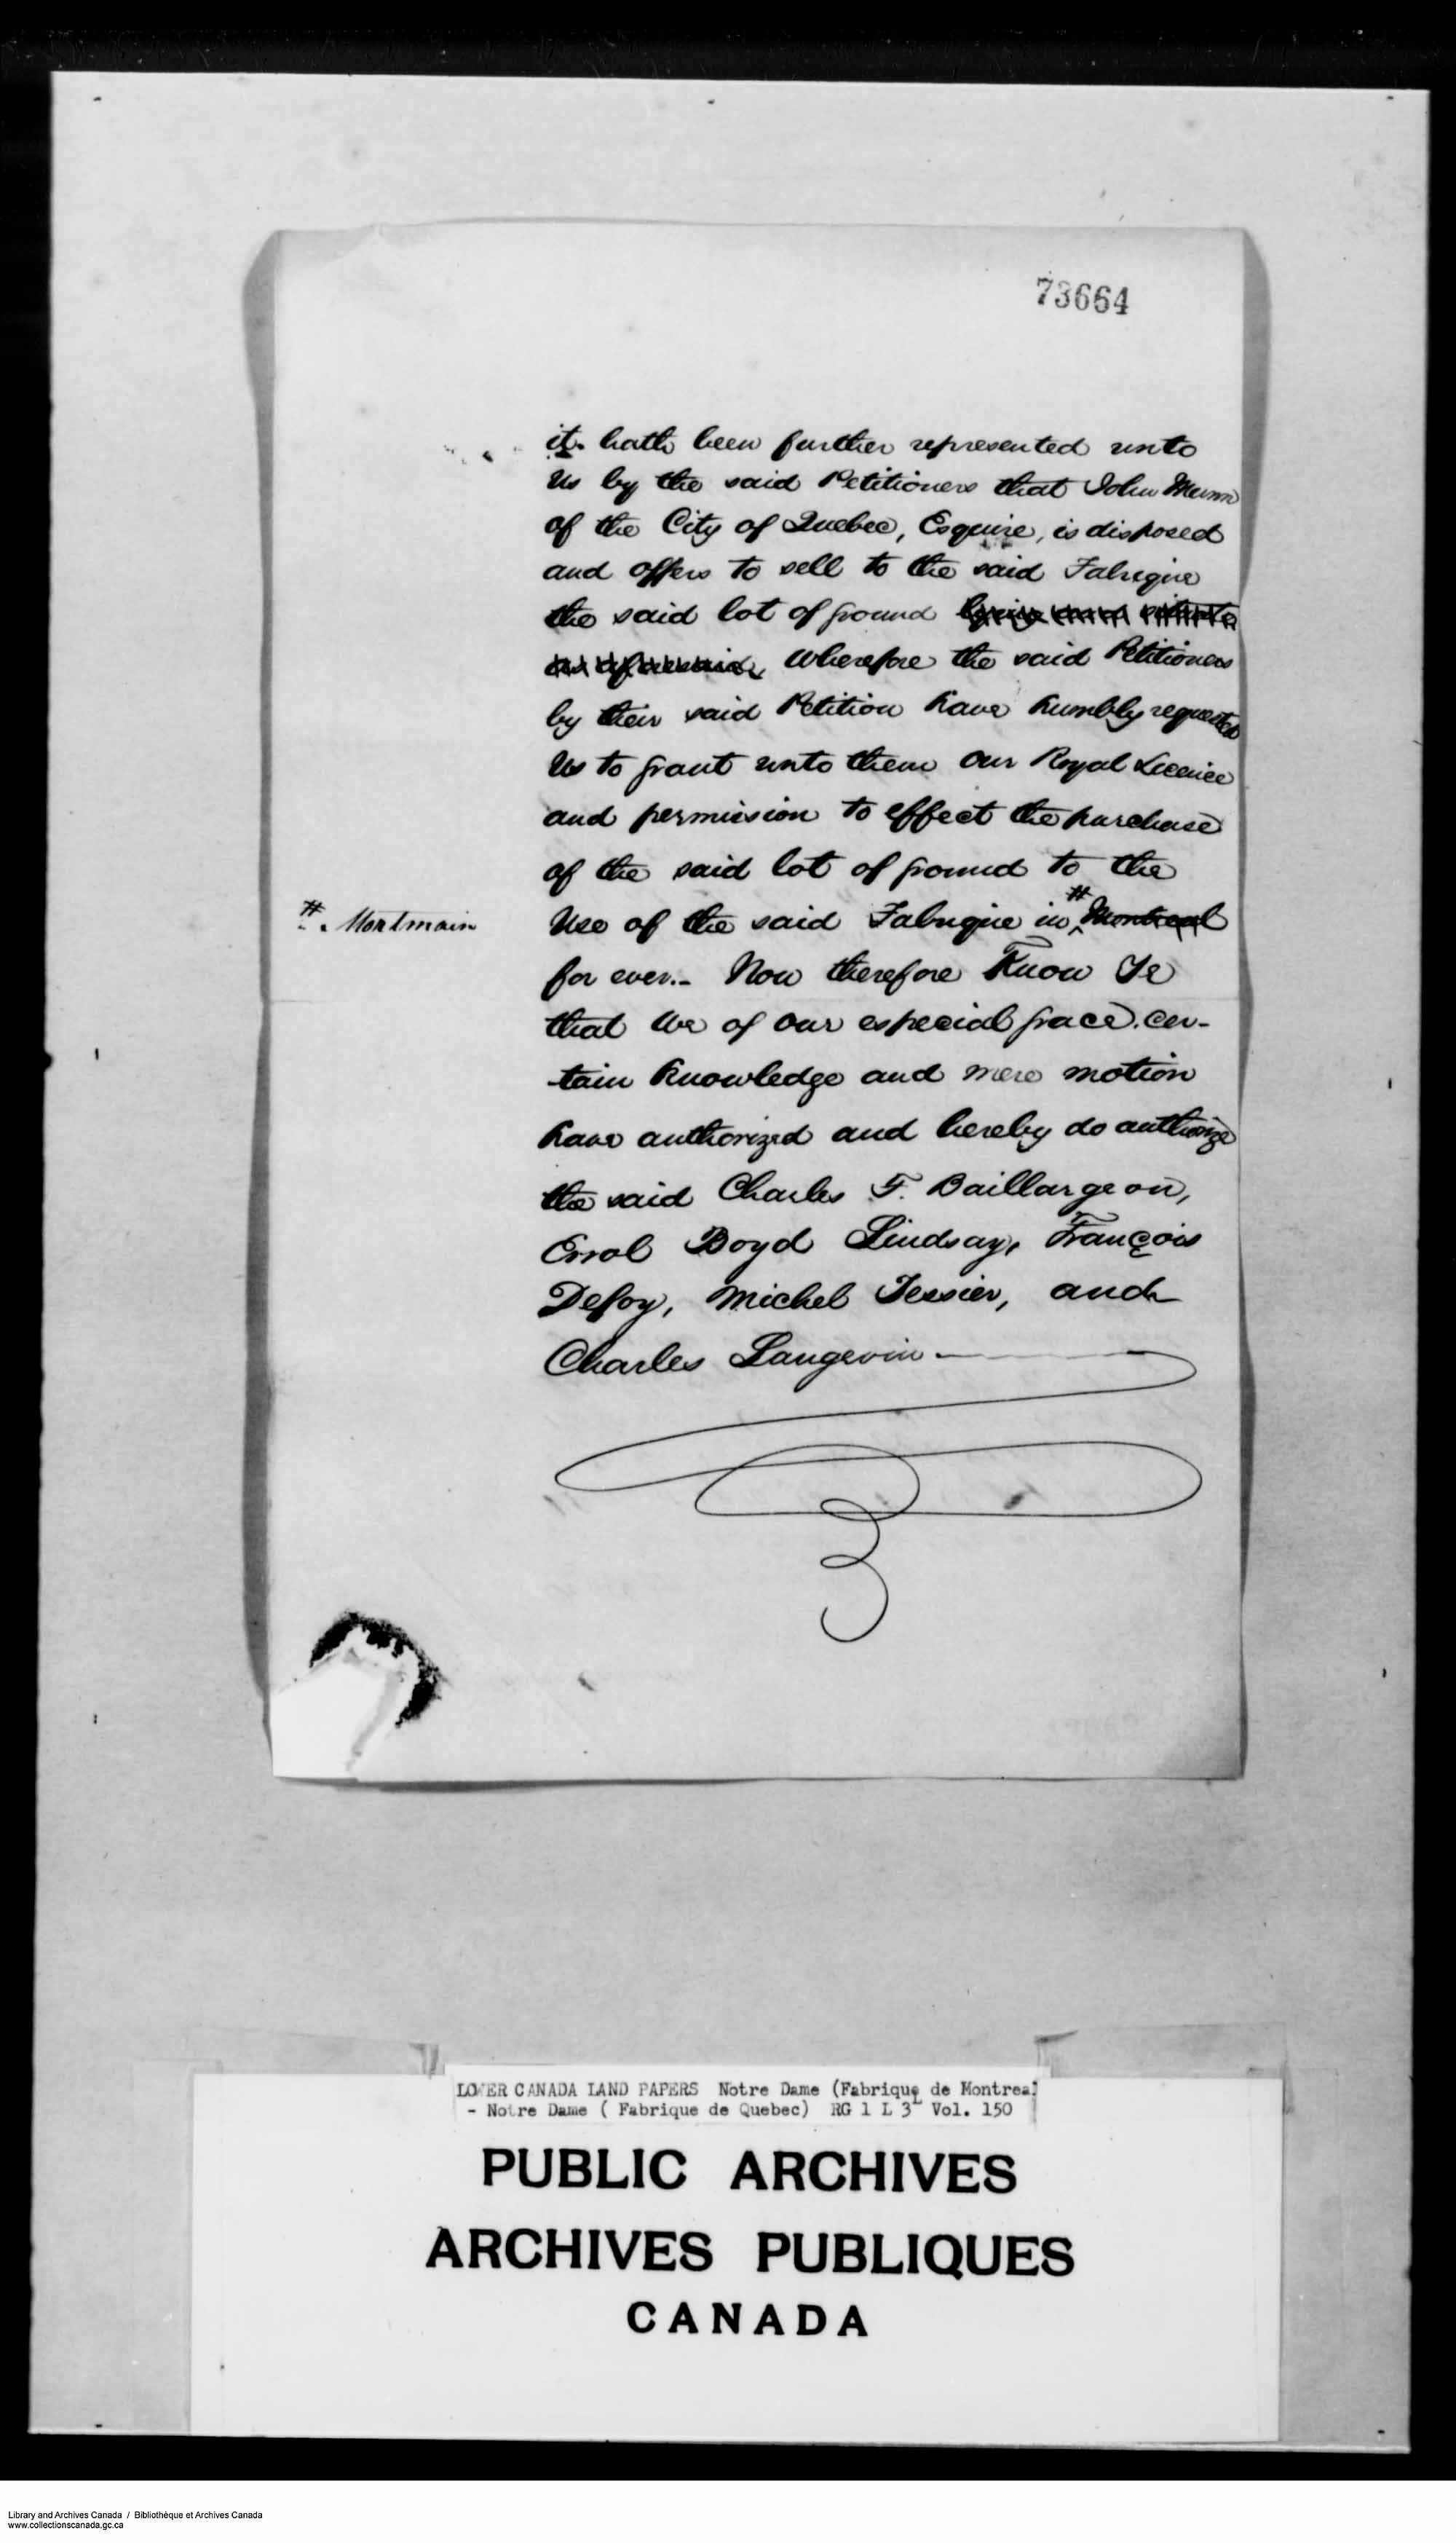 73664
it hath been further represented unto
Us by the said Petitioners that John Munn
of the City of Quebec, Esquire, is disposed
and offers to sell to the said Fabrique
the said lot of ground lying and situate
as aforesaid, Wherefore the said Petitioners
by their said Petition have humbly requested
Us to grant unto them our Royal Licence
and permission to effect the purchase
of the said lot of ground to the
# Mortmain
Use of the said Fabrique in # Montreal
for ever.- Now therefore Know Ye
that We of our especial grace, cer-
-tain knowledge and mere motion
have authorized and hereby do authorize
the said Charles F. Baillargeon,
Errol Boyd Lindsay, François
Defoy, Michel Tessier, and
Charles Langevin
LOWER CANADA LAND PAPERS Notre Dame (Fabrique de Montreal
- Notre Dame ( Fabrique de Quebec) RG 1 L 3L Vol. 150
PUBLIC ARCHIVES
ARCHIVES PUBLIQUES
CANADA
Library and Archives Canada / Bibliothèque et Archives Canada
www.collectionscanada.gc.ca